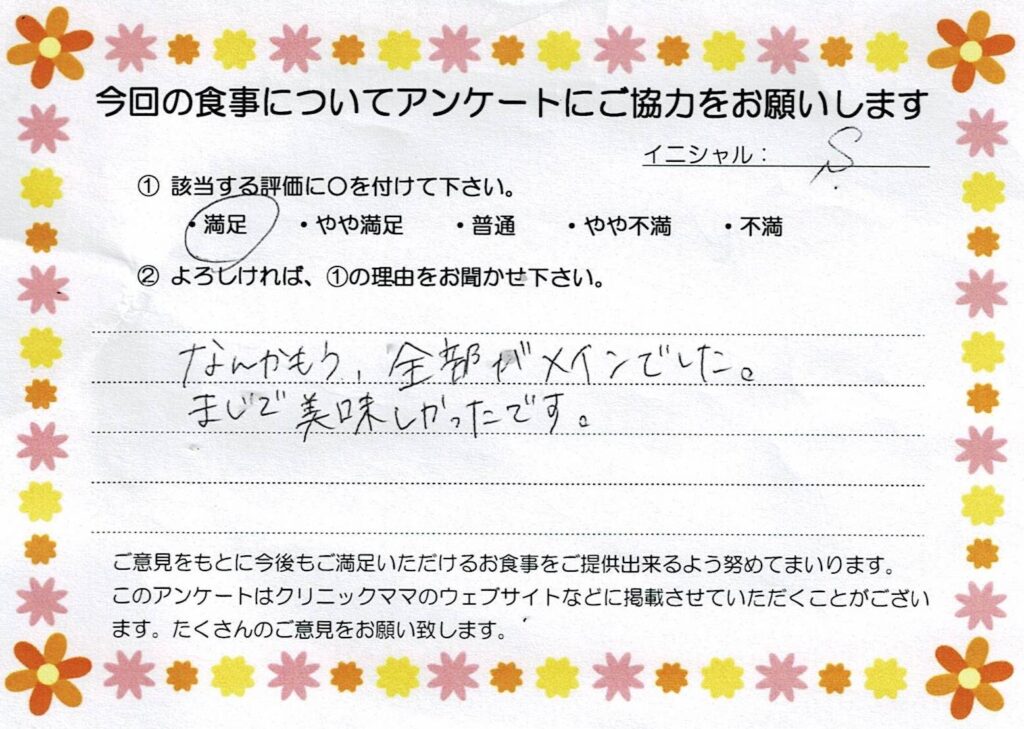 今回の食事についてアンケートにご協力をお願いします
イニシャル： S
① 該当する評価に〇を付けて下さい。
・満足 ・やや満足 ・普通 ・やや不満 ・不満
② よろしければ、①の理由をお聞かせ下さい。
なんかもう、全部がメインでした。
まじで美味しかったです。
ご意見をもとに今後もご満足いただけるお食事をご提供出来るよう努めてまいります。
このアンケートはクリニックママのウェブサイトなどに掲載させていただくことがござい
ます。たくさんのご意見をお願い致します。